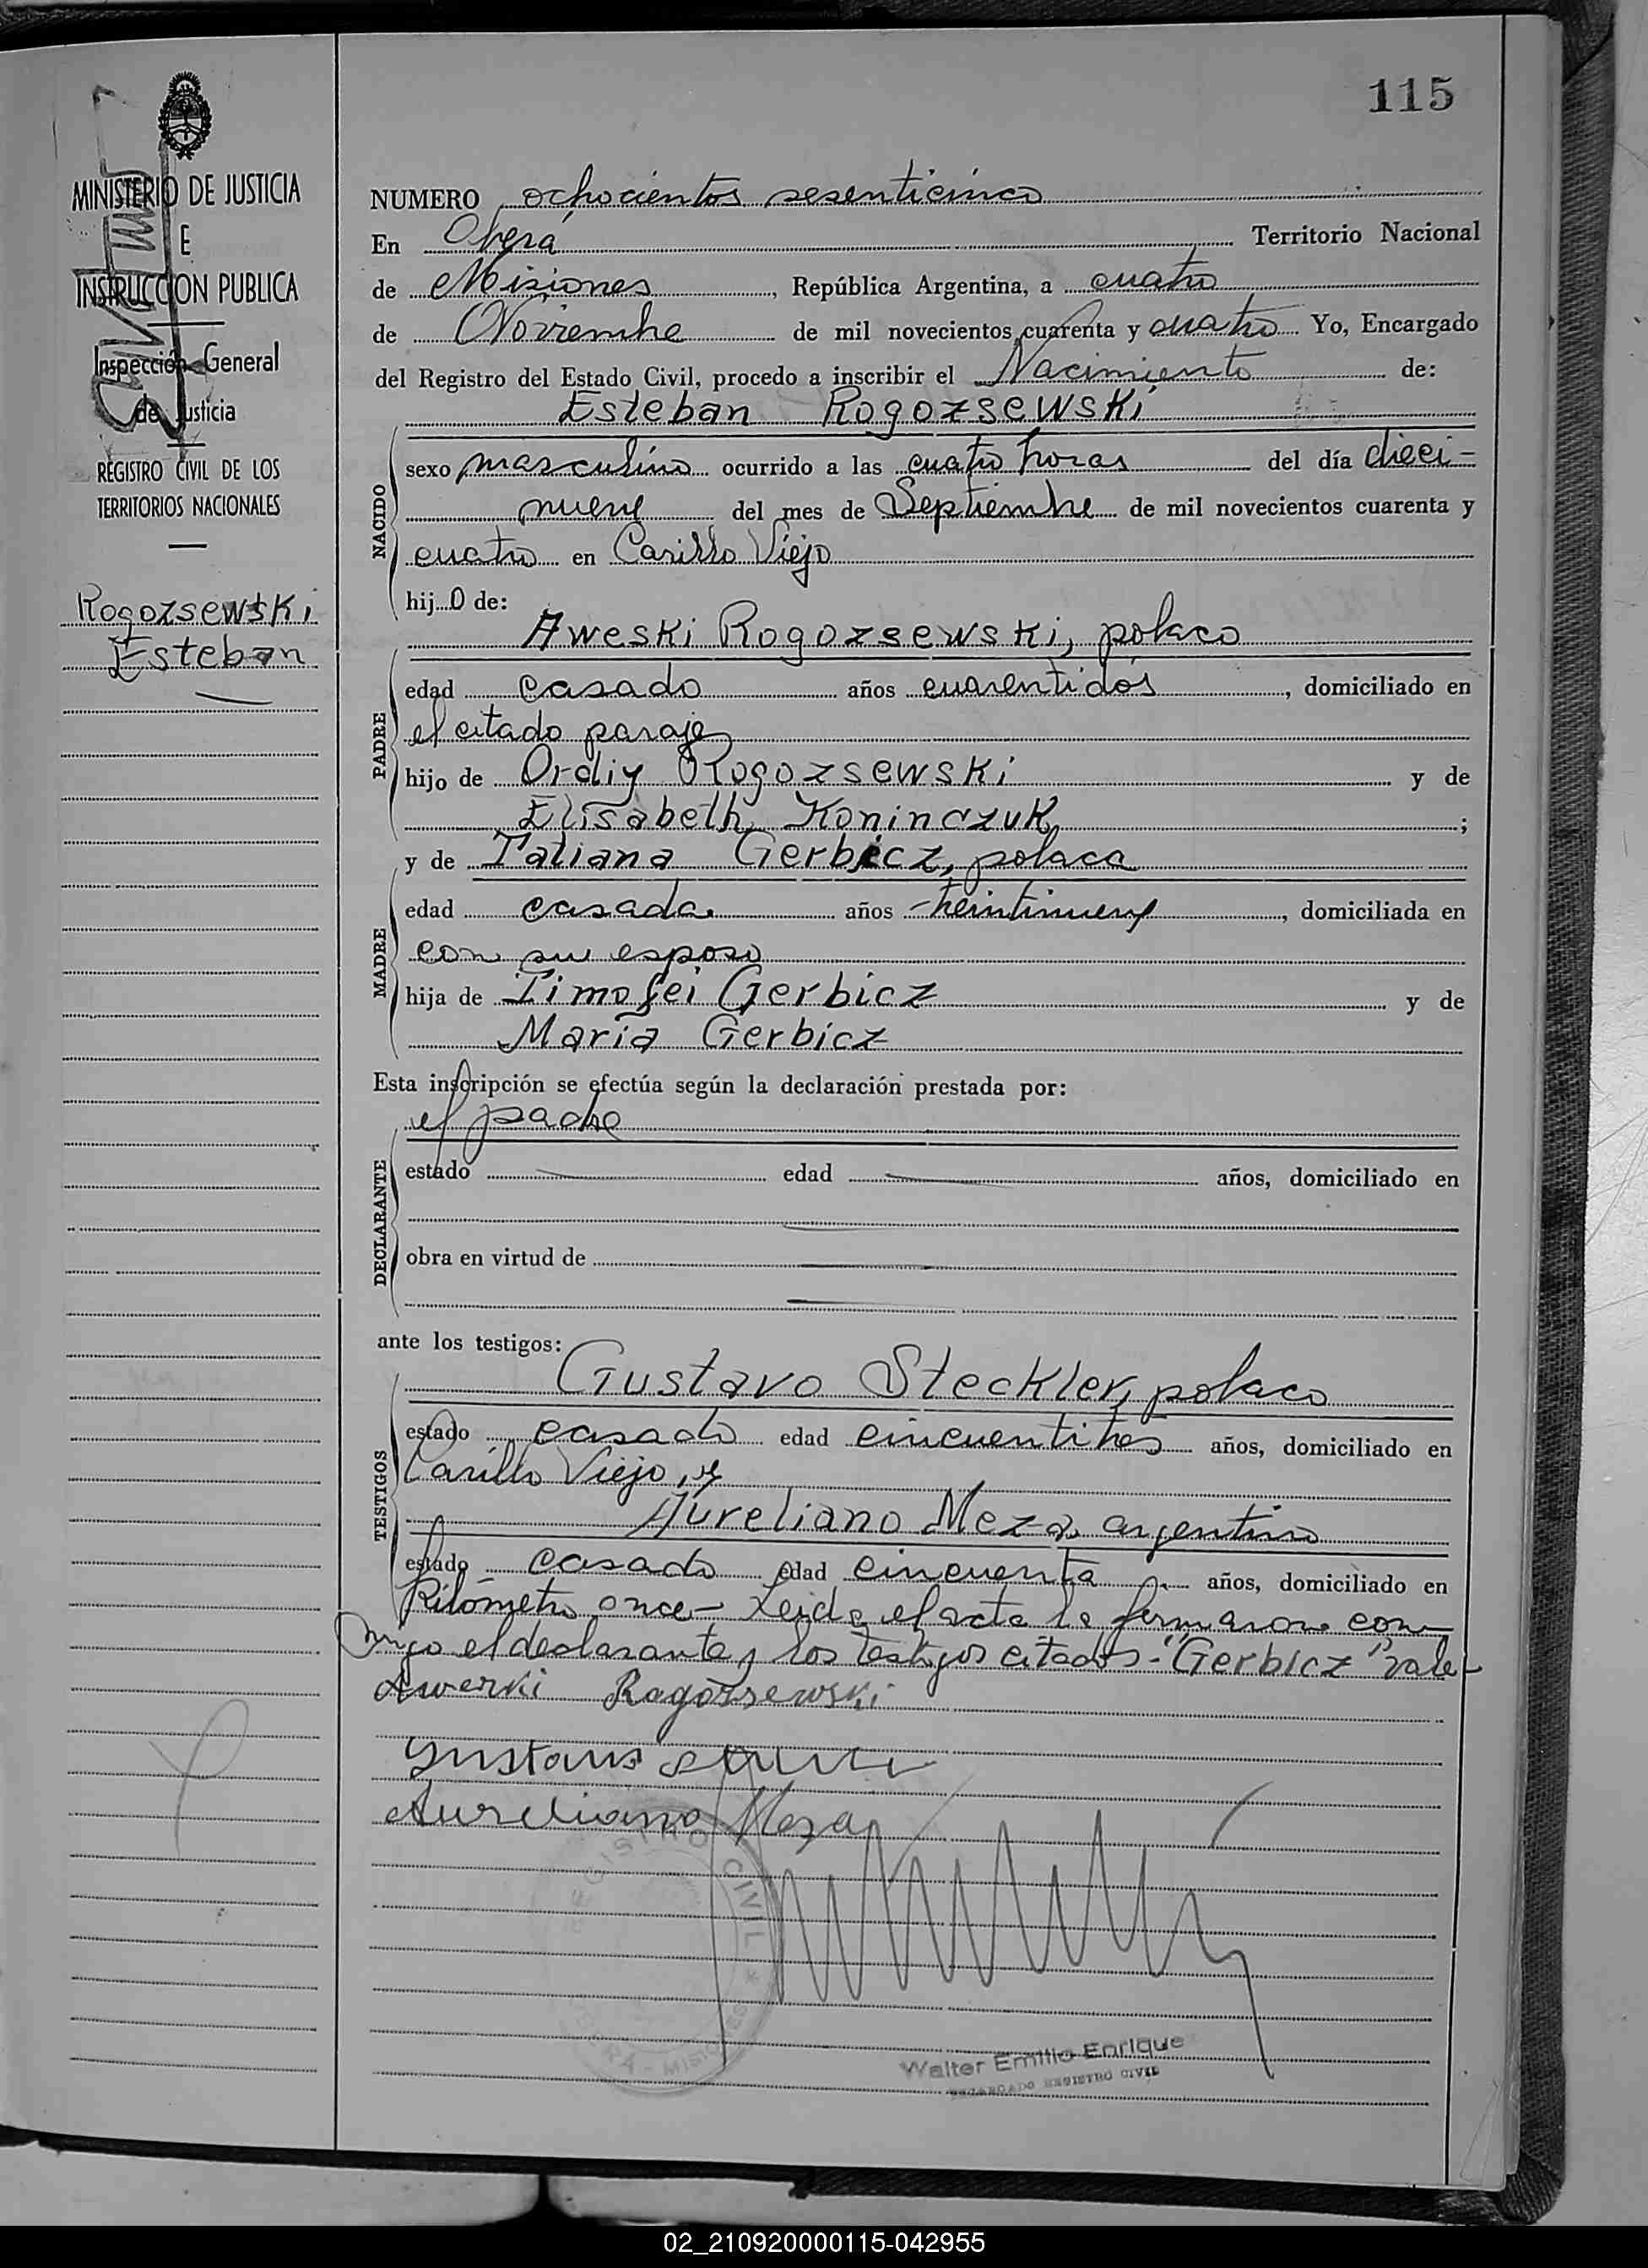 115
MINISTERIO DE JUSTICIA
E
INSTRUCCION PUBLICA
Inspección General
de Justicia
REGISTRO CIVIL DE LOS
TERRITORIOS NACIONALES
Rogozsewski
Esteban
NUMERO ochocientos sesenticinco
En Oberá Territorio Nacional
de Misiones, República Argentina, a cuatro
de Noviembre de mil novecientos cuarenta y cuatro Yo, Encargado
del Registro del Estado Civil, procedo a inscribir el Nacimiento de:
Esteban Rogozsewski
NACIDO
sexo masculino ocurrido a las cuatro horas del día dieci-
nueve del mes de Septiembre de mil novecientos cuarenta y
cuatro en Carillo Viejo
hijo de:
Aweski Rogozsewski, polaco
PADRE
edad casado años cuarentidós, domiciliado en
el citado paraje
hijo de Ordiy Rogozsewski y de
Elisabeth Koninczuk;
y de Tatiana Gerbicz, polaca
MADRE
edad casada años veintinueve, domiciliada en
con su esposo
hija de Timofei Gerbicz y de
María Gerbicz
Esta inscripción se efectúa según la declaración prestada por:
el padre
DECLARANTE
estado edad años, domiciliado en
obra en virtud de
ante los testigos:
Gustavo Steckler, polaco
TESTIGOS
estado casado edad cincuentitres años, domiciliado en
Carillo Viejo, y
Aureliano Meza argentino
estado casado edad cincuenta años, domiciliado en
Kilómetro once- Leida el acta la firmaron con-
migo el declarante y los testigos citados-"Gerbicz" vale-
Awerki Rogozsewski
Gustavo
Aureliano Meza
REGISTRO CIVIL * OBERÁ - MISIONES
Walter Emilio Enrique
ENCARGADO REGISTRO CIVIL
02_210920000115-042955